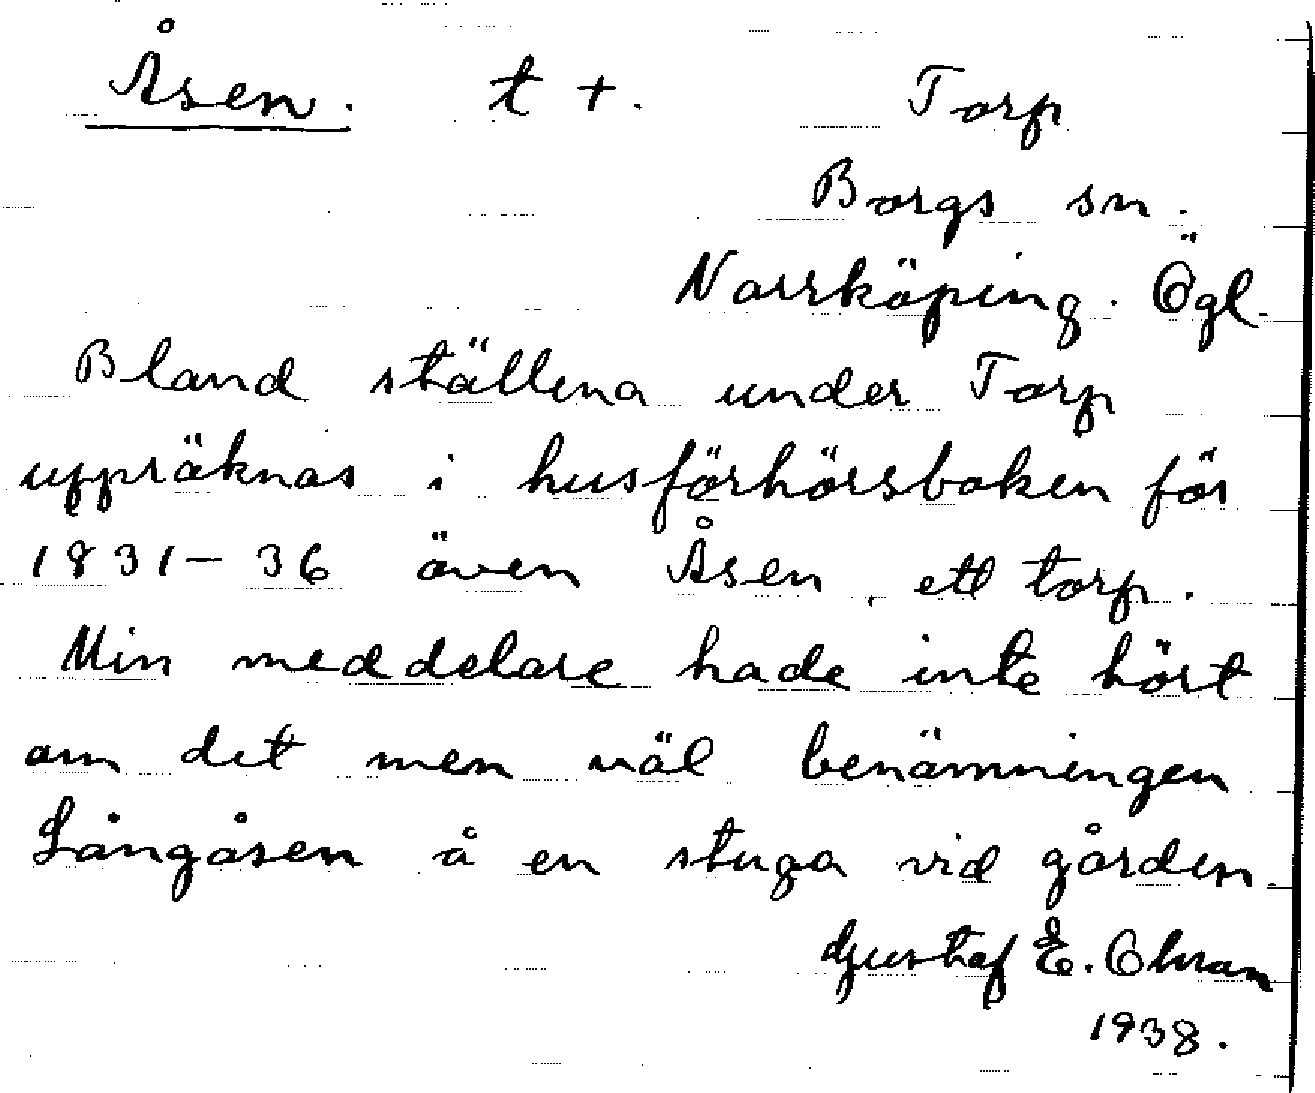 Åsen. t +. Torp
Borgs sn.
Norrköping. Ögl.
Bland ställena under Torp
uppräknas i husförhörsboken för
1831-36 även Åsen, ett torp.
Min meddelare hade inte hört
om det men väl benämningen
Långåsen å en stuga vid gården.
Gustaf E.
1938.